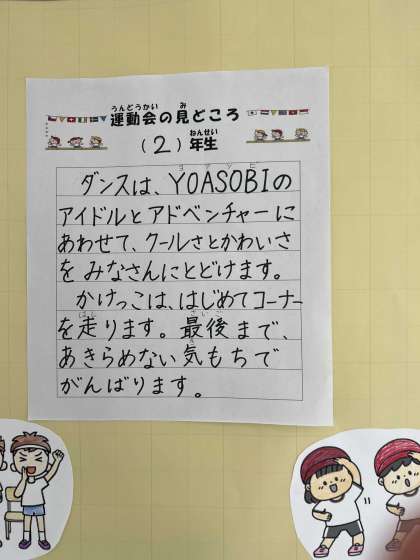 うんどうかい み
運動会の見どころ
ねんせい
(2)年生
ヨアソビ
ダンスは、YOASOBIの
アイドルとアドベンチャーに
あわせて、クールさとかわいさ
をみなさんにとどけます。
かけっこは、はじめてコーナー
はし さいご
を走ります。最後まで、
き
あきらめない気もちで
がんばります。